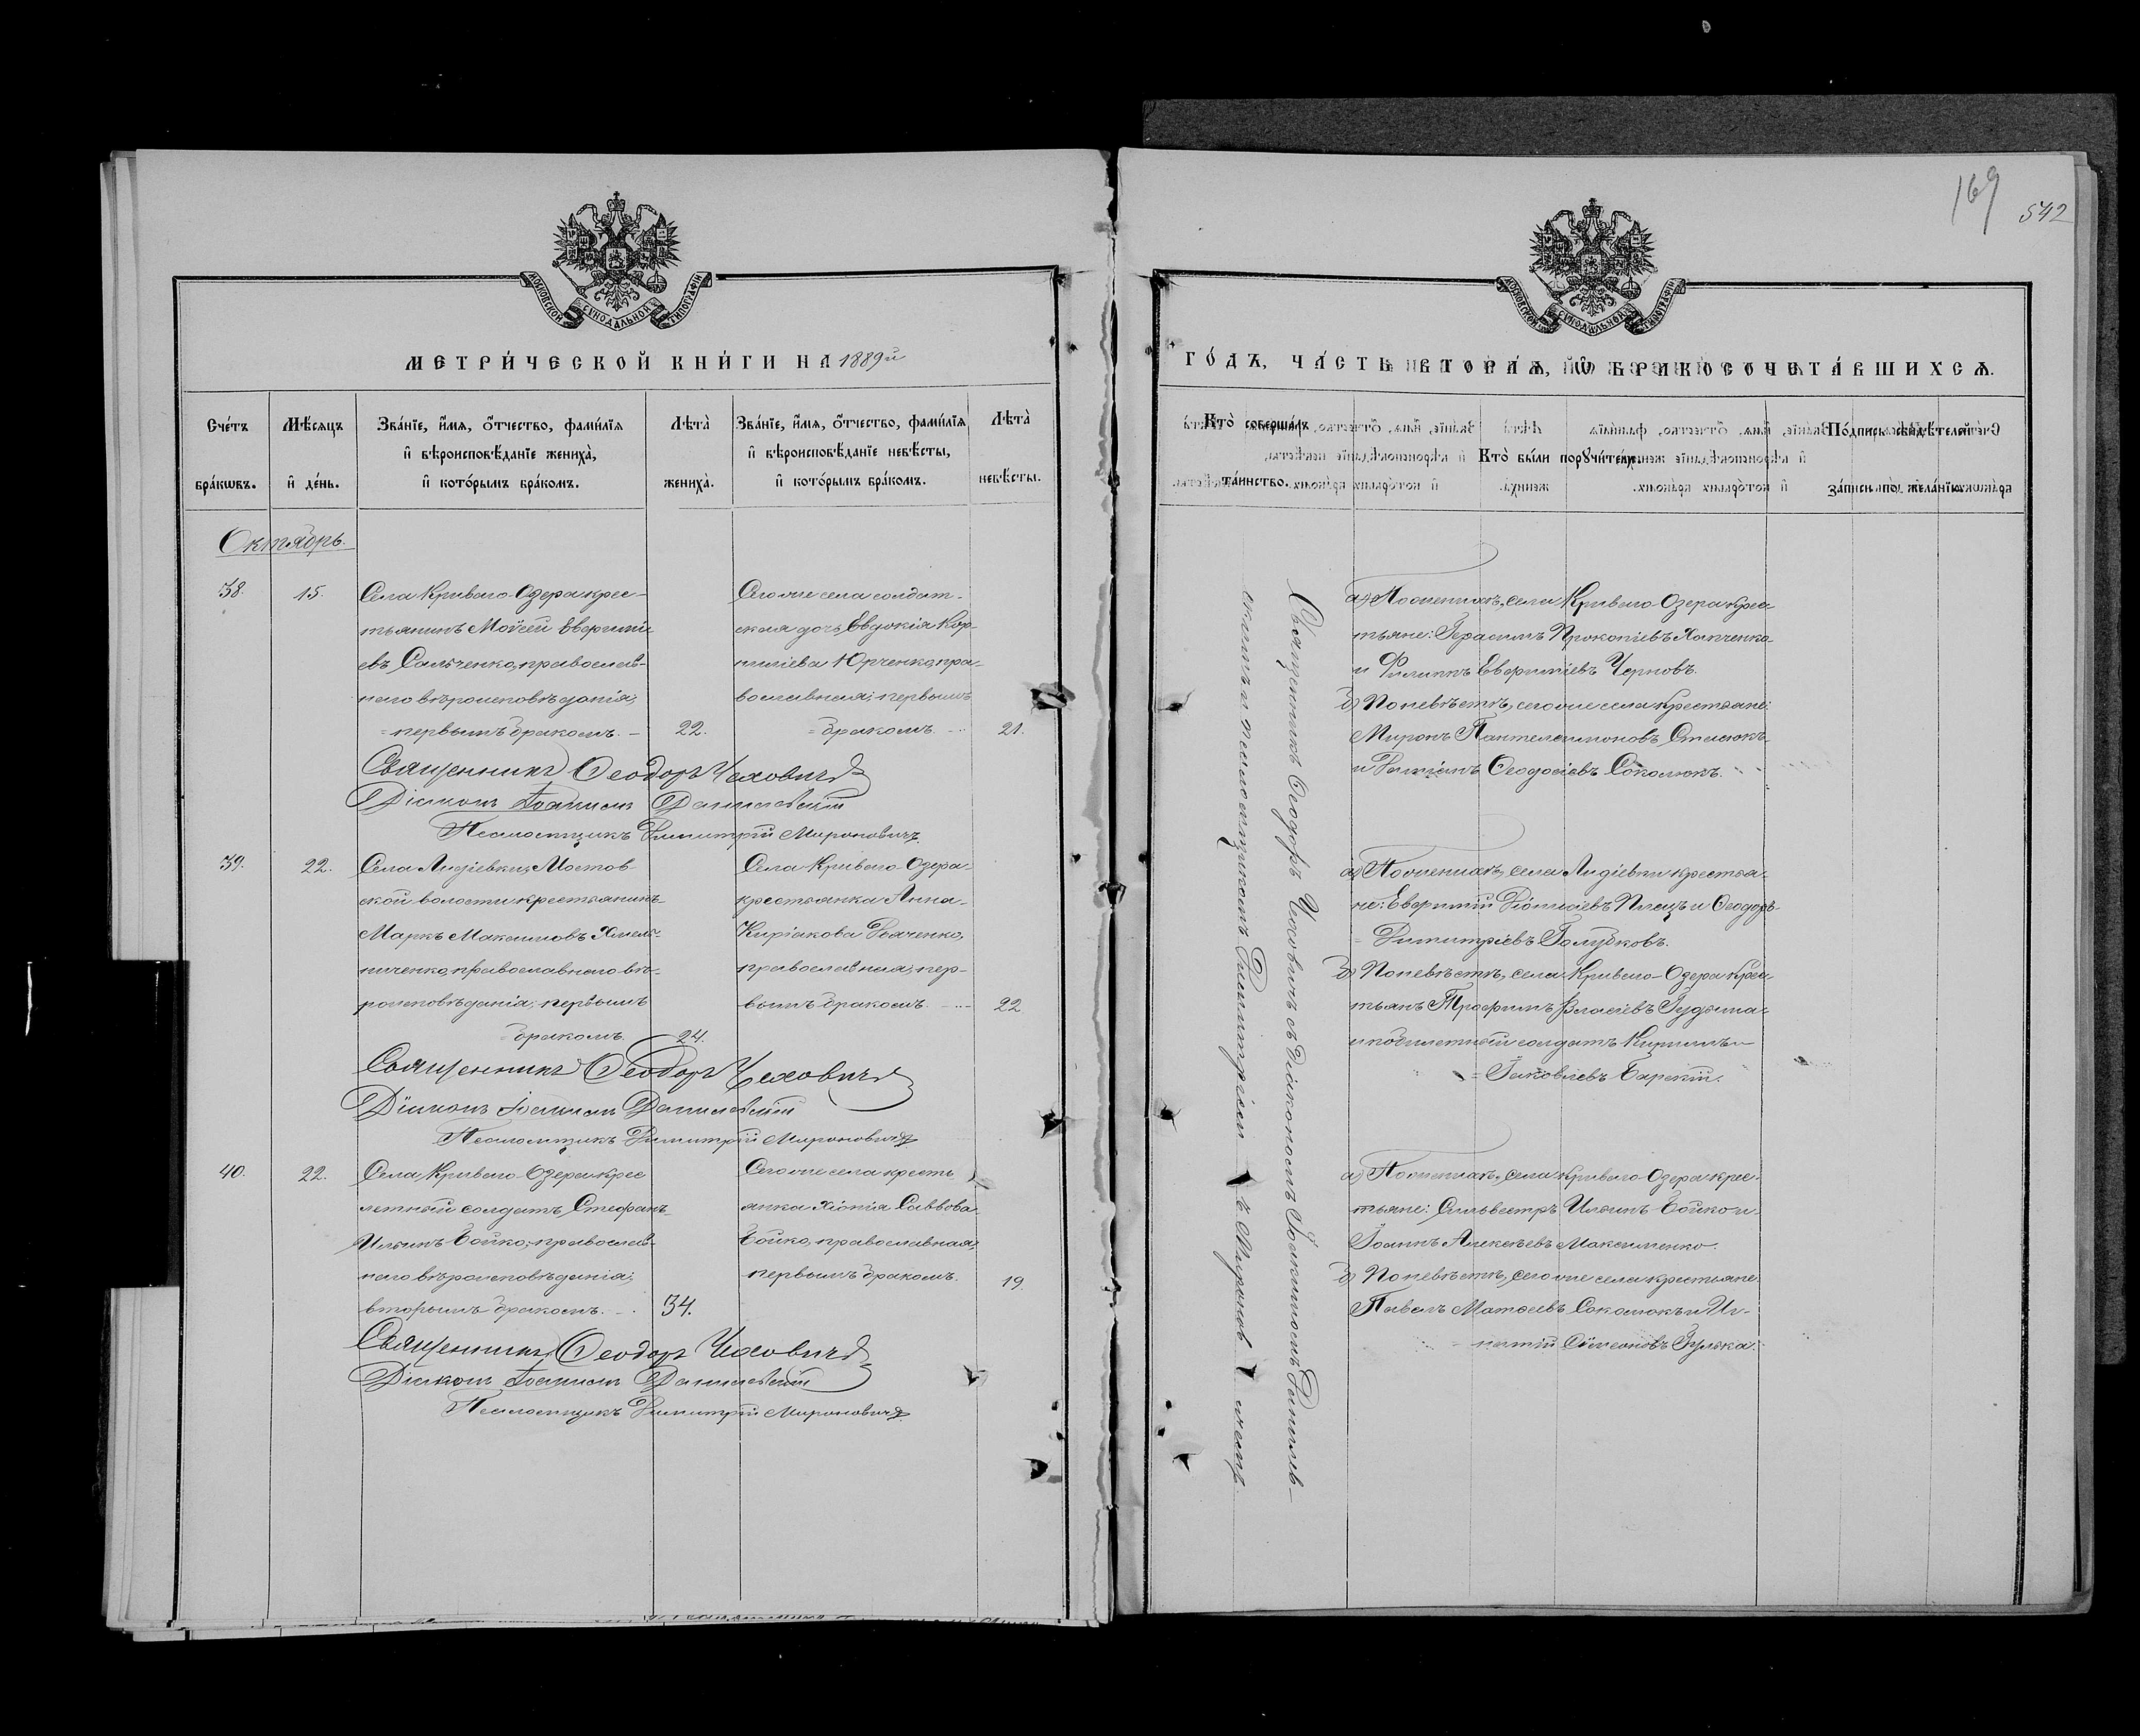 169
542
МОСКОВСКОЙ СѴНОДАЛЬНОЙ ТИПОГРАФІИ
МЕТРИ́ЧЕСКОЙ КНИ́ГИ НА 1889й
Сче́тъ бра́кѡвъ.
Мѣ́сяцъ и де́нь.
Зва́нїе, и́мѧ, ѻ́тчество, фами́лїѧ
и вѣроисповѣ́данїе жениха̀,
и кото́рымъ бра́комъ.
Лѣта̀ жениха̀.
Зва́нїе, и́мѧ, ѻ́тчество, фами́лїѧ
и вѣроисповѣ́данїе невѣ́сты,
и кото́рымъ бра́комъ.
Лѣта̀ невѣ́сты.
Октябрь.
38.
15.
Села Криваго-Озера крес-
тьянинъ Моѵсей Евѳиміи-
евъ Сальченко, православ-
наго вѣроисповѣданія;
первымъ бракомъ. –
22.
Сегоже села солдат-
ская дочь Евдокія Кор-
ниліева Юрченко, пра-
вославная; первымъ
бракомъ.
21.
Священникъ Ѳеодоръ Чеховичъ
Діаконъ Іоакимъ Данилевскій
Псаломщикъ Димитрій Мироновичъ
39.
22.
Села Лидіевки, Мостов-
ской волости крестьянинъ
Маркъ Максимовъ Хмель-
ниченко, православнаго вѣ-
роисповѣданія; первымъ
бракомъ.
24.
Села Криваго-Озера
крестьянка Анна
Киріакова Ткаченко,
православная; пер-
вымъ бракомъ.
22
Священникъ Ѳеодоръ Чеховичъ
Діаконъ Іоакимъ Данилевскій
Псаломщикъ Димитрій Мироновичъ
40.
22.
Села Криваго-Озера крес
летній солдатъ Стефанъ
Ильинъ Бойко, православ-
наго вѣроисповѣданія;
вторымъ бракомъ.
34.
Сегоже села кресть
янка Хіонія Саввова
Бойко, православная;
первымъ бракомъ.
19.
Священникъ Ѳеодоръ Чеховичъ
Діаконъ Іоакимъ Данилевскій
Псаломщикъ Димитрій Мироновичъ
МОСКОВСКОЙ СѴНОДАЛЬНОЙ ТИПОГРАФІИ
ГО́ДЪ, ЧА́СТЬ ВТОРА́Ѧ, Ѡ҆ БРАКОСОЧЕТА́ВШИХСѦ.
Кто̀ соверша́лъ та́инство.
Кто̀ бы́ли поручи́тели.
По́дпись свидѣ́телей за́писи по жела́нїю.
Священникъ Ѳеодоръ Чеховичъ съ Діакономъ Іоакимомъ Данилев-
скимъ и псаломщикомъ Димитріемъ Миронов
а) По женихѣ, села Криваго-Озера крес
тьяне: Герасимъ Прокопіевъ Хапченко
и Филиппъ Евѳиміевъ Черновъ.
б) По невѣстѣ, сегоже села крестьяне:
Миронъ Пантелеимоновъ Стасюкъ
и Даміанъ Ѳеодосіевъ Соколюкъ.
а) По женихѣ, села Лидіевки крестья-
не: Евѳимій Діонисіевъ Плецъ и Ѳеодоръ
Димитріевъ Голубковъ.
б) По невѣстѣ, села Криваго-Озера крес
тьянъ Трофимъ Власіевъ Гудыма
и побилетный солдатъ Кириллъ
Іаковлевъ Барскій.
а) По женихѣ, села Криваго-Озера крес-
тьяне: Сильвестръ Ильинъ Бойко и
Іоаннъ Алексѣевъ Максименко.
б) По невѣстѣ, сегоже села крестьяне
Павелъ Матѳеевъ Соколюкъ и Иг-
натій Сѵмеоновъ Гулька.